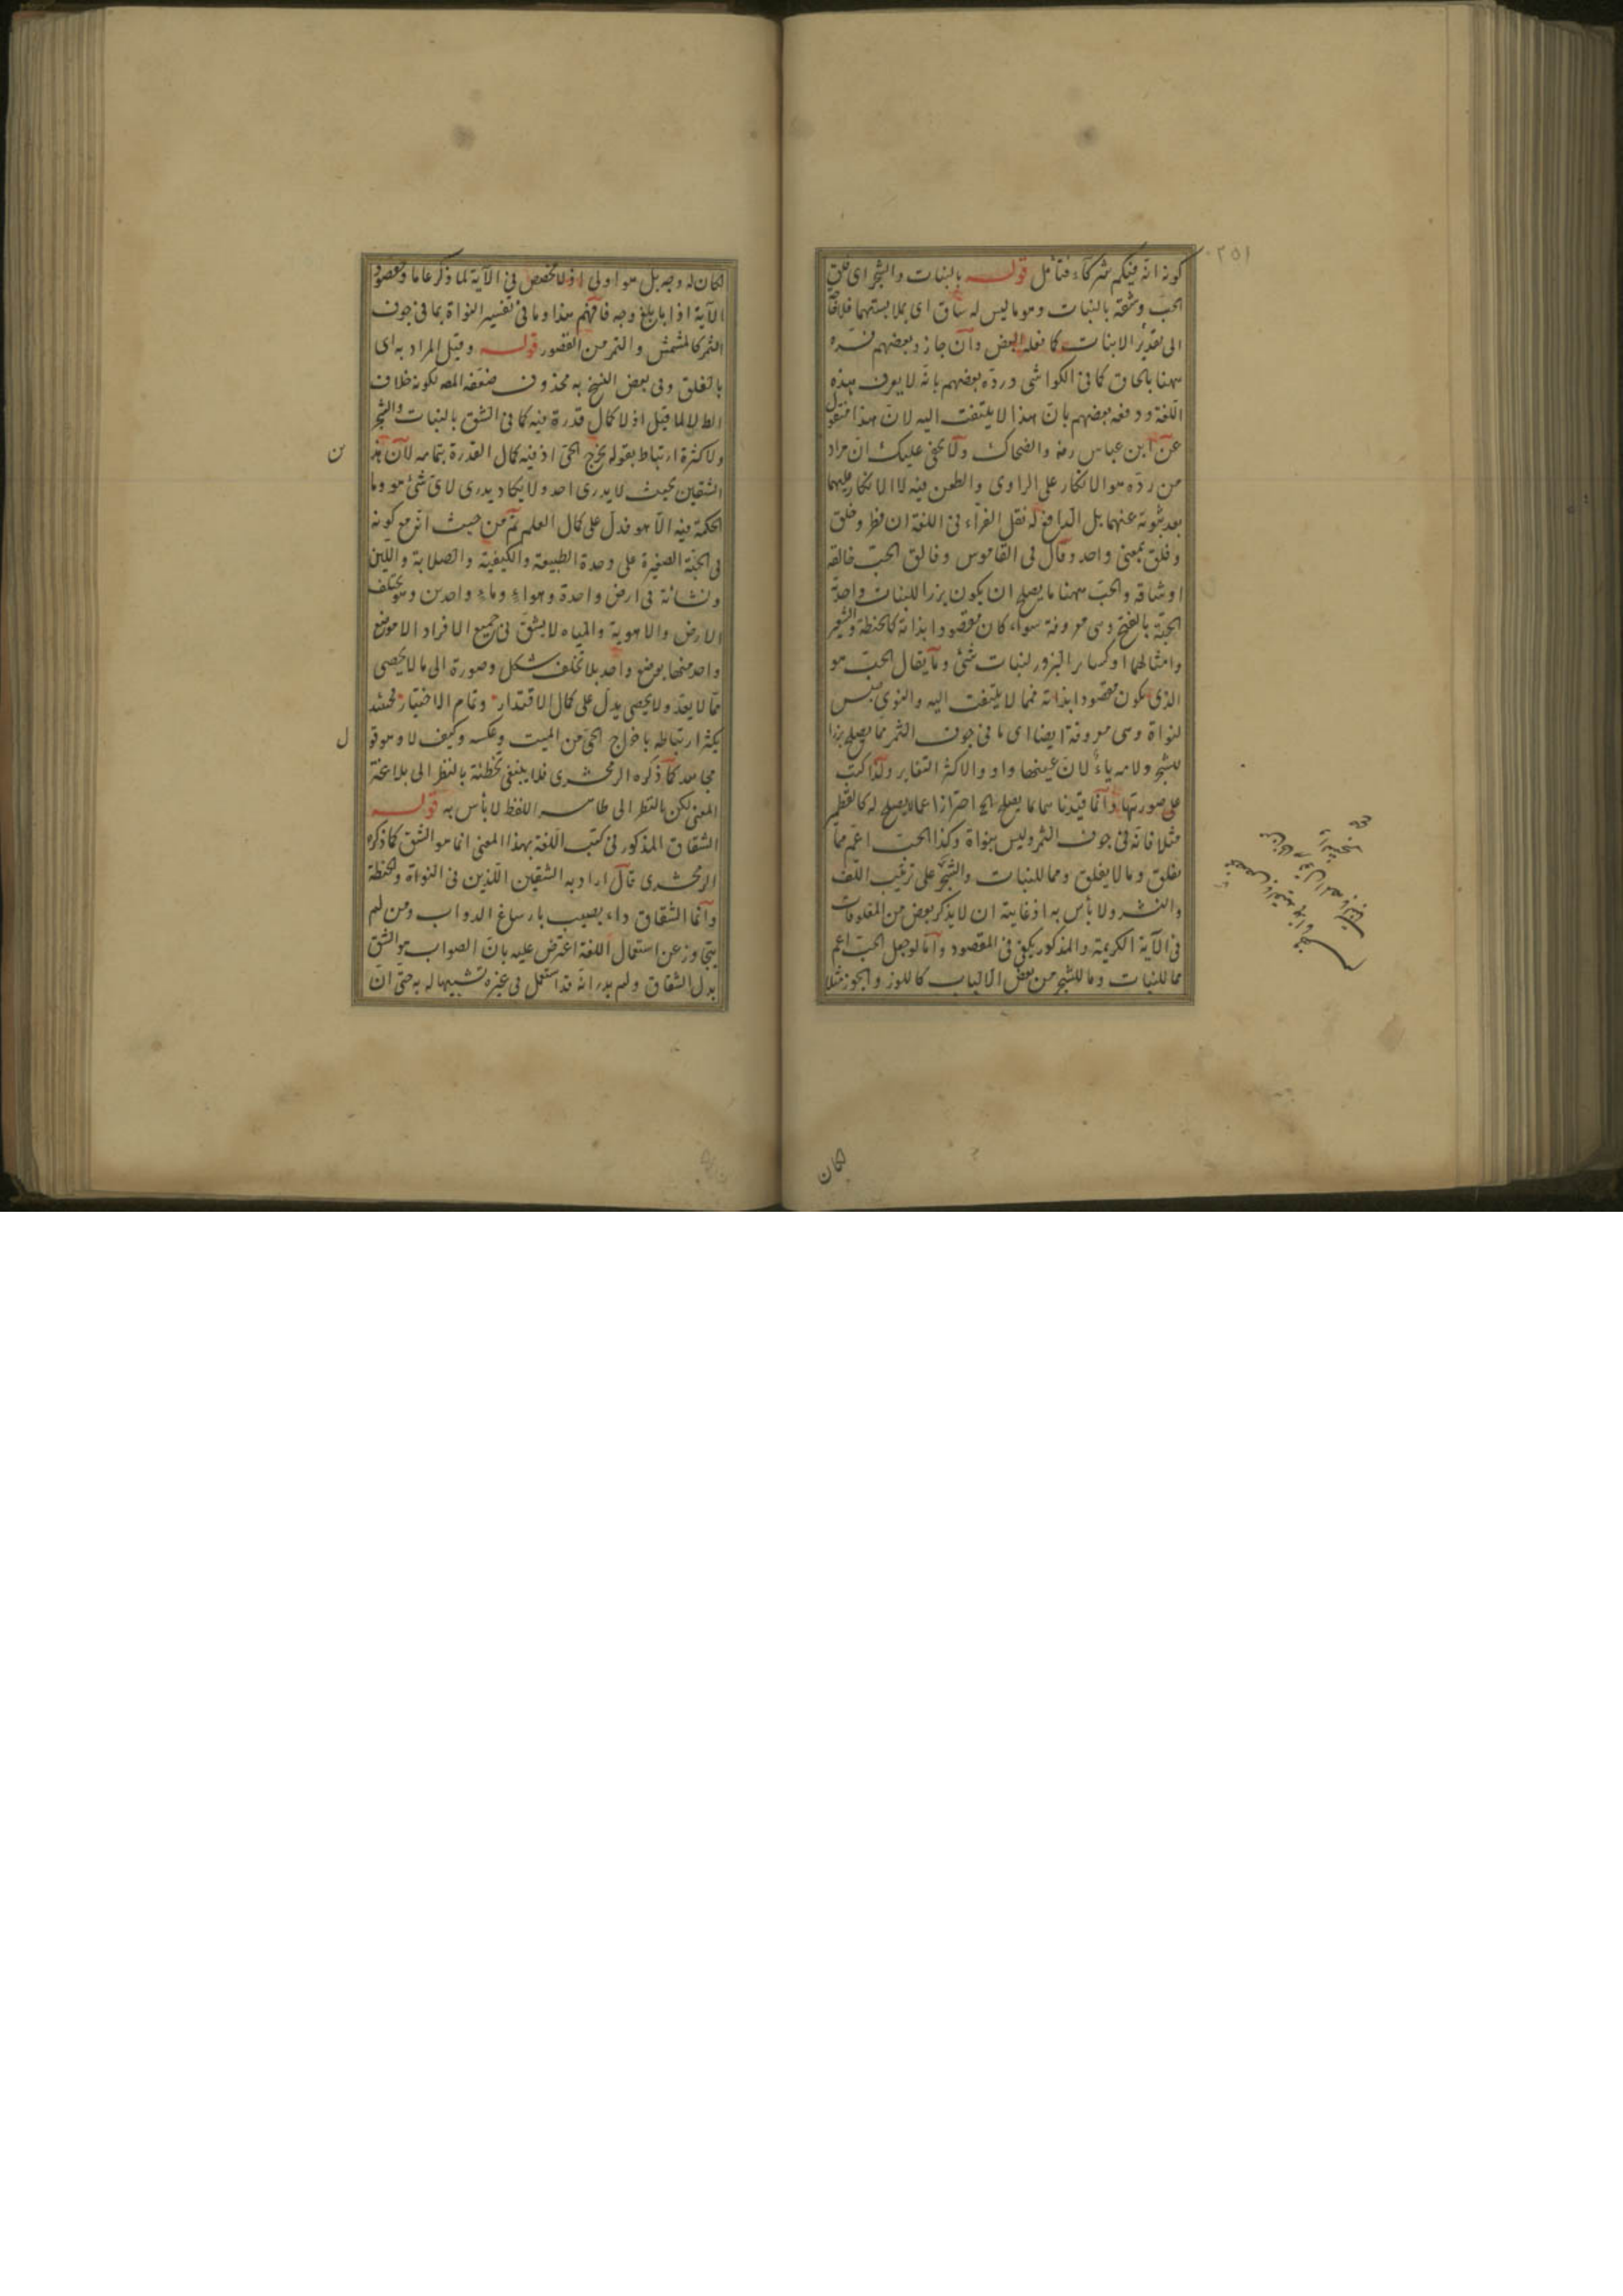 كونه انه فيكم شركاء فتأمل قوله بالنبات والشجر اى فلق
الحب وشقه بالنبات وهو ما ليس له ساق اى بملابستهما فلا حاجة
الى تقدير الانبات كما فعله البعض وان جاز وبعضهم فسره
ههنا بالخالق كما فى الكواشى ورده بعضهم بانه لا يعرف هذه
اللغة ودفعه بعضهم بان هذا لا يلتفت اليه لان هذا منقول
عن ابن عباس رضه والضحاك ولا يخفى عليك ان مراد
من رده هو الانكار على الراوى والطعن فيه لا الانكار عليهما
بعد ثبوته عنهما بل الدافع له نقل الفراء فى اللغة ان فطر وخلق
وفلق بمعنى واحد وقال فى القاموس وفالق الحب خالقه
او شاقه والحب ههنا ما يصلح ان يكون بزرا للنبات واحدة
الحبة بالفتح وهى معروفة سواء كان مقصودا بذاته كالحنطة والشعير
وامثالهما او كسائر البزور لنبات شئ وما يقال الحب هو
الذى يكون مقصودا بذاته فمما لا يلتفت اليه والنوى جنس
لنواة وهى معروفة ايضا اى ما فى جوف الثمر مما يصلح بزرا
للشجر ولامه ياء لان عينها واو والاكثر التغاير ولذا كتب
على صورتها وانما قيدنا بما يصلح الخ احترازا عما لا يصلح له كالعظم
مثلا فانه فى جوف الثمر وليس بنواة وكذا الحب اعم مما
يفلق وما لا يفلق ومما للنبات والشجر على ترتيب اللف
والنشر ولا بأس به اذ غايته ان لا يذكر بعض من المفلوقات
فى الآية الكريمة والمذكور يكفى فى المقصود واما لو جعل الحب اعم
مما للنبات وما للشجر من بعض الالباب كاللوز والجوز مثلا
لكان
لكان له وجه بل هو اولى اذ لا مخصص فى الآية لما ذكر عاما ومقصود
الآية اذا بابلغ وجه فافهم هذا وما فى تفسير النواة بما فى جوف
الثمر كالمشمش والتمر من القصور قوله وقيل المراد به اى
بالفلق وفى بعض النسخ به محذوف ضعفه المص لكونه خلاف
الظ لا لما قيل اذ لا كمال قدرة فيه كما فى الشق بالنبات والشجر
ولا كثرة ارتباط بقوله يخرج الحى اذ فيه كمال القدرة بتمامه لان هذ
الشقين بحيث لا يدرى احد ولا يكاد يدرى لاى شئ هو وما
الحكمة فيه الا هو فدل على كمال العلم ثم من حيث انه مع كونه
فى الحبة الصغيرة على وحدة الطبيعة والكيفية والصلابة واللين
ونشأته فى ارض واحدة وهواء وماء واحدين ومختلف
الارض والاهوية والمياه لا يشق فى جميع الافراد الا موضع
واحد منها بوضع واحد بلا تخلف شكل وصورة الى ما لا يحصى
مما لا يعد ولا يحصى يدل على كمال الاقتدار وتمام الاختيار فحينئذ
يكثر ارتباطه باخراج الحى من الميت وعكسه وكيف لا وهو قو
مجاهد كما ذكره الزمخشرى فلا ينبغى تخطئة بالنظر الى بلاغة
المعنى لكن بالنظر الى ظاهر اللفظ لا بأس به قوله
الشقاق المذكور فى كتب اللغة بهذا المعنى انما هو الشق كما ذكره
الزمخشرى قال اراد به الشقين اللذين فى النواة والحنطة
وانما الشقاق داء يصيب بارساغ الدواب ومن لم
يتجاوز عن استعمال اللغة اعترض عليه بان الصواب هو الشق
بدل الشقاق ولم يدر انه قد استعمل فى غيره تشبيها له به حتى ان